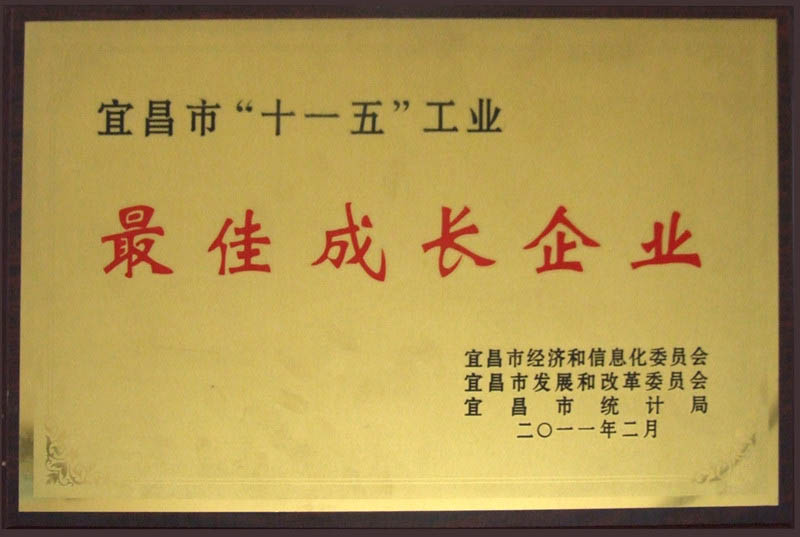 宜昌市“十一五”工业
最佳成长企业
宜昌市经济和信息化委员会
宜昌市发展和改革委员会
宜昌市统计局
二〇一一年二月